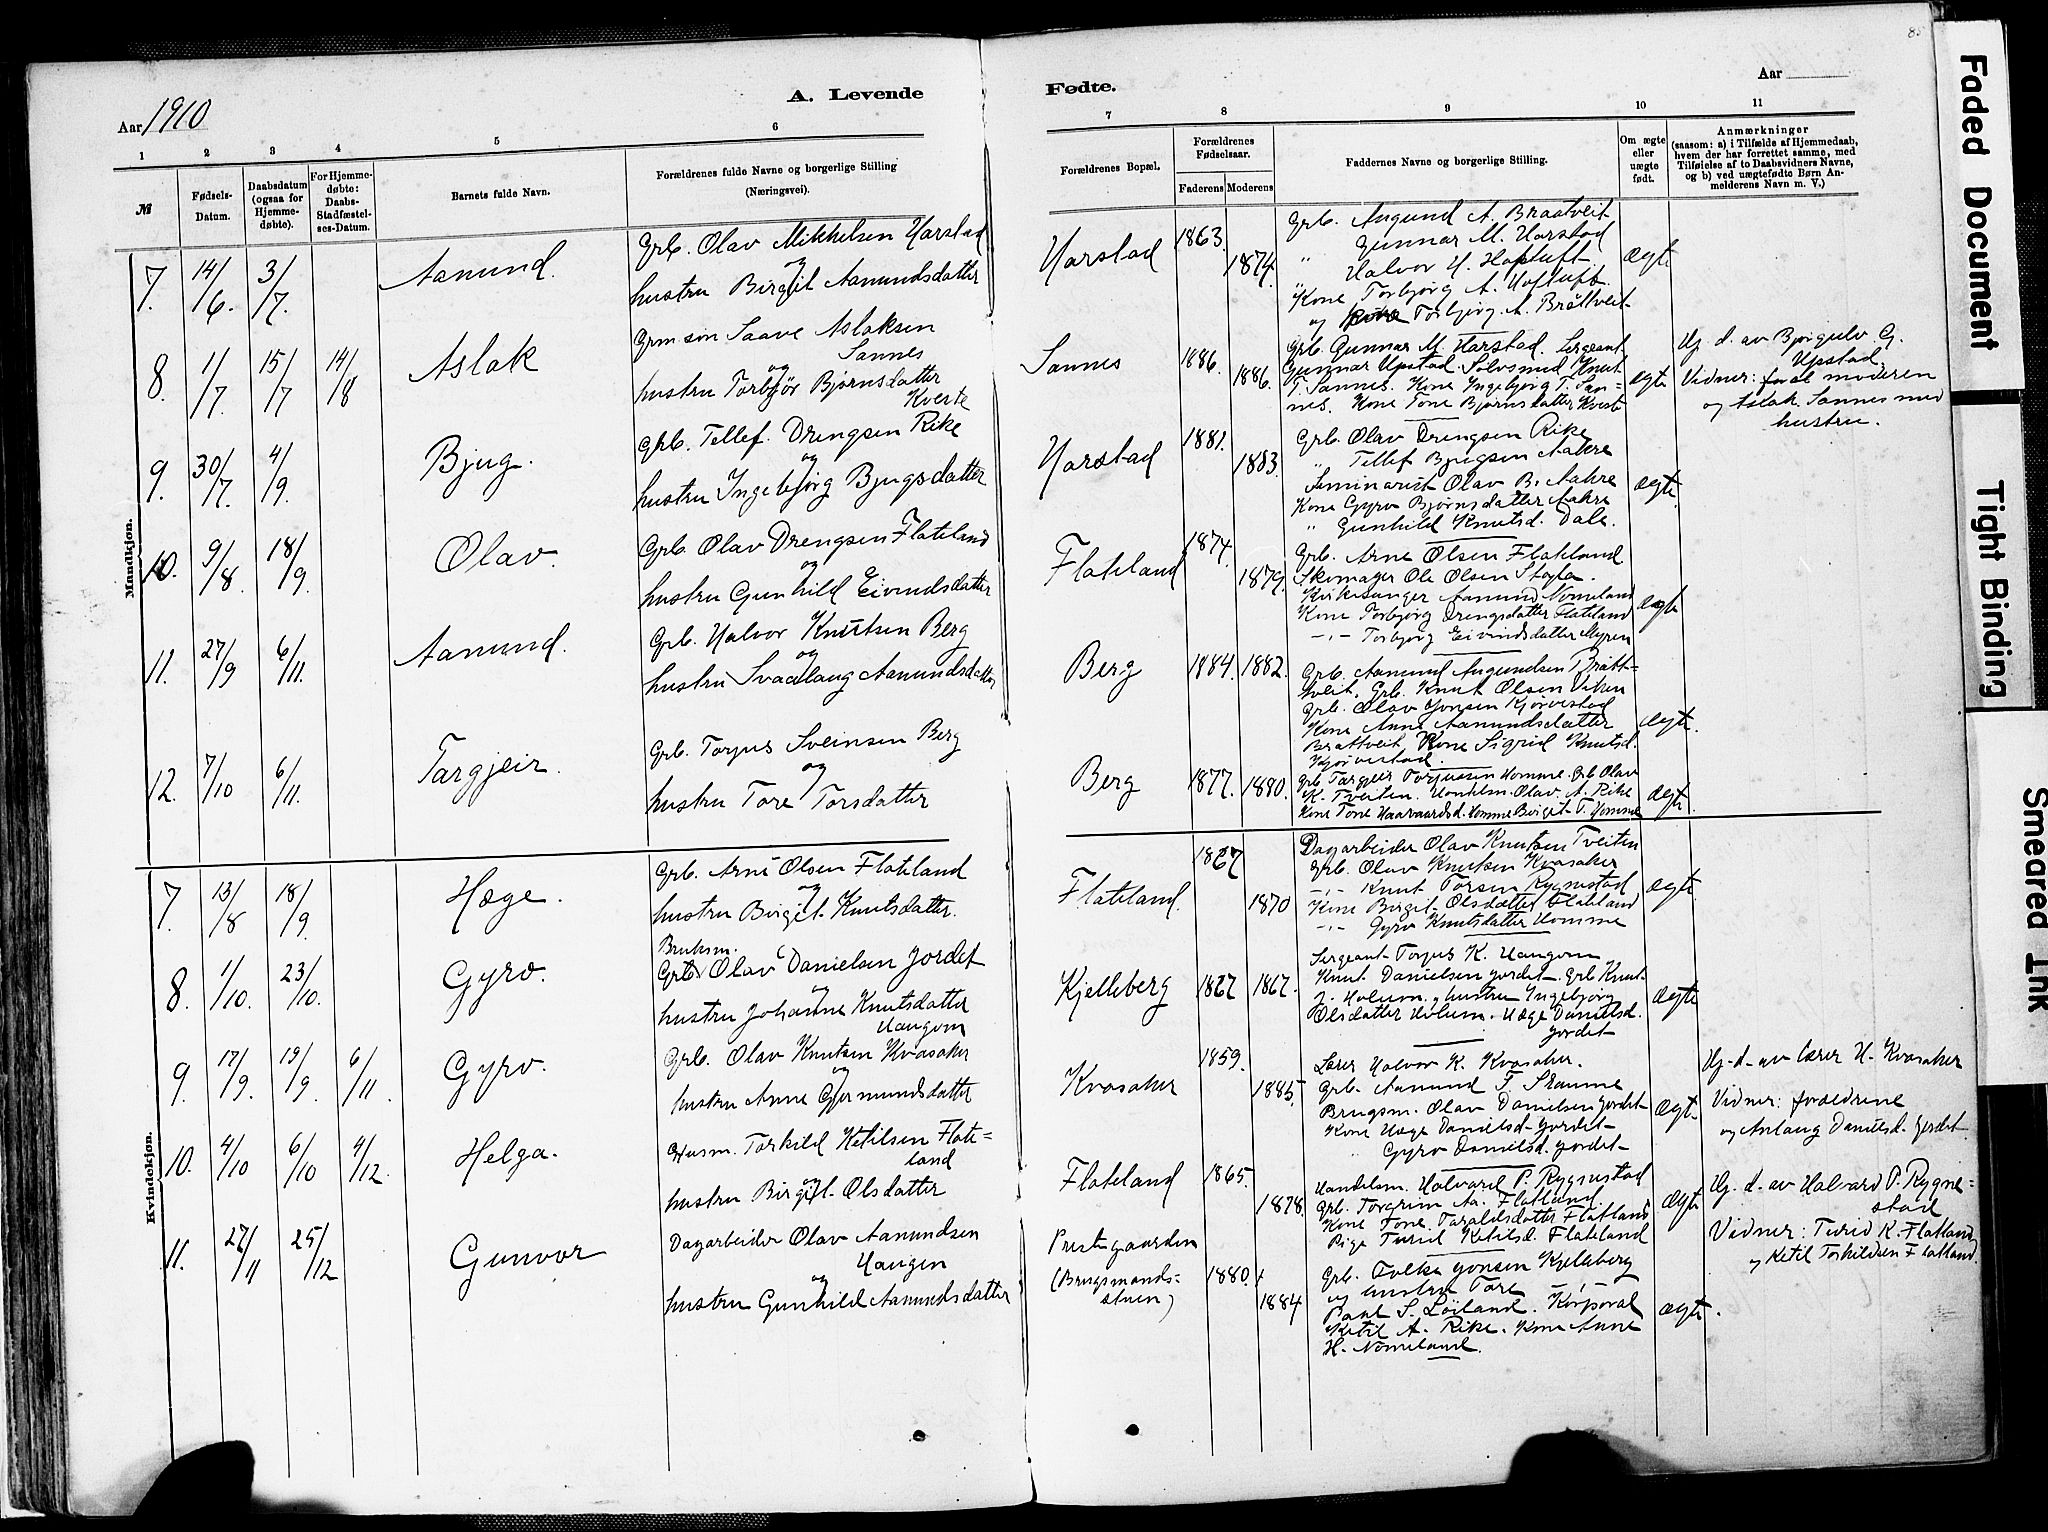 85
Aar 1910
A. Levende
Fødte.
Aar
1
2
3
4
5
6
7
8
9
10
11
№
Fødsels-
Datum.
Daabsdatum
(ogsaa for
Hjemme-
døbte).
For Hjemme-
døbte:
Daabs-
Stadfæstel-
ses-Datum.
Barnets fulde Navn.
Forældrenes fulde Navne og borgerlige Stilling
(Næringsvei).
Forældrenes Bopæl.
Forældrenes
Fødselsaar.
Faderens
Moderens
Faddernes Navne og borgerlige Stilling.
Om ægte
eller
uægte
født.
Anmærkninger
(saasom: a) i Tilfælde af Hjemmedaab,
hvem der har forrettet samme, med
Tilføielse af to Daabsvidners Navne,
og b) ved uægtefødte Børn An-
melderens Navn m. V.)
Mandkjøn.
7. 14/6. 3/7. Aanund.
Grb. Olav Mikkelsen Harstad
og
hustru Birgit Aanundsdatter
Harstad 1863. 1874.
Grb. Augund A. Braatveit
" Gunnar M. Harstad
" Halvor H. Hoftuft
Kone Torbjørg A. Hoftuft.
og Torbjørg. A. Bråttveit
ægte
8. 1/7. 15/7 14/8 Aslak
Grm søn Saave Aslaksen
Sannes
og
hustru Torbjør Bjørnsdatter
Kverte
Sannes 1886. 1886.
Grb. Gunnar M. Harstad. Sergeant
Gunnar Upstad. Sølvsmed Knut
T. Sannes. Kone Ingebjørg T. San=
nes. Kone Tone Bjørnsdatter Kverte
ægte
Hj. d. av Bjørgulv G.
Upstad.
Vidner: moderen
og Aslak Sannes med
hustru.
9. 30/7. 4/9. Bjug.
Grb. Tellef. Drengsen Rike
og
hustru Ingebjørg Bjugsdatter
Harstad 1881. 1883.
Grb. Olav Drengsen Rike
" Tellef Bjugsen Aakre
Seminarist Olav B. Aakre
Kone Gyro Bjørnsdatter Aakre
" Gunhild Knutsd. Dale.
ægte
10. 9/8. 18/9. Olav.
Grb. Olav Drengsen Flateland
og
hustru Gunhild Eivindsdatter
Flateland 1874. 1879.
Grb. Arne Olsen Flateland
Skomager Ole Olsen
Kirkesanger Aanund Nomeland
Kone Torbjørg Drengsdatter Flateland
-,- Torbjørg Eivindsdatter Myren
ægte
11. 27/9 6/11. Aanund.
Grb. Halvor Knutsen Berg
og
hustru Svaalaug Aanundsdatter
Berg 1884. 1882.
Grb. Aanund Augundsen Brått-
tveit. Grb. Knut Olsen Viken
Grb. Olav Jonsen Kjørvestad
Kone Anne Aanundsdatter
Brattveit Kone Sigrid Knutsd.
Kjørvestad.
ægte.
12. 7/10 6/11. Targjeir.
Grb. Torjus Sveinsen Berg
og
hustru Tore Torsdatter
Berg 1877. 1880.
Grb. Targjeir Torjussen Homme. Grb Olav
K. Tveiten. Handelsm. Olav. A. Rike
Kone Tone Haavaardsd. Homme Birget T. Homme
ægte.
Kvindekjøn.
7. 13/8 18/9. Hæge.
Grb. Arne Olsen Flateland
og
hustru Birget Knutsdatter.
Flateland. 1867 1870
Dagarbeider Olav Knutsen Tveiten
Grb. Olav Knutsen Kvasaker
-,- Knut Torsen Rygnestad
Kone Birget Olsdatter Flateland
-,- Gyro Knutsdatter Homme
ægte.
8. 1/10. 23/10. Gyro.
Bruksm.
Grb. Olav Danielsen Jordet
og
hustru Johanne Knutsdatter
Haugom
Kjelleberg 1867 1867.
Sergeant Torjus K. Haugom
Knut Danielsen Jordet. Grb Knut
J. Holum. hustru Ingebjørg
Olsdatter Holum. Hæge Danielsd.
Jordet
ægte
9. 17/9. 19/9. 6/11. Gyro.
Grb. Olav Knutsen Kvasaker
og
hustru Anne Gjermundsdatter
Kvasaker 1859. 1885.
Lærer Halvor K. Kvasaker.
Grb. Aanund T.
Brugsm. Olav Danielsen Jordet
Kone Hæge Danielsd. Jordet
" Gyro Danielsd. Jordet
ægte
Hj. d. av lærer H. Kvasaker
Vidner: forældrene
og Anlaug Danielsd. Jordet.
10. 4/10 6/10 4/12. Helga.
Husm. Torkild Ketilsen Flate=
land
og
hustru Birgit. Olsdatter
Flateland 1865. 1878.
Handelsm. Halvard P. Rygnestad
Grb. Torgrim Aa. Flatland
Kone Tone Taraldsdatter Flatland
Pige Turid Ketilsd. Flateland
ægte
Hj. d. av Halvard P. Rygne=
stad
Vidner: Turid K. Flatland
og Ketil Torkildsen Flatland.
11. 27/11 25/12 Gunvor
Dagarbeider Olav Aanundsen
Haugen
og
hustru Gunhild Aanundsdatter
Prestegaarden
(Brugsmands-
stuen)
1880. 1884
Grb. Folke Jonsen Kjelleberg
og hustru Tore -,-
Paul S. Løiland. Korporal
Ketil A. Rike. Kone Anne
H. Nomeland.
ægte.
Faded Document
Tight Binding
Smeared Ink